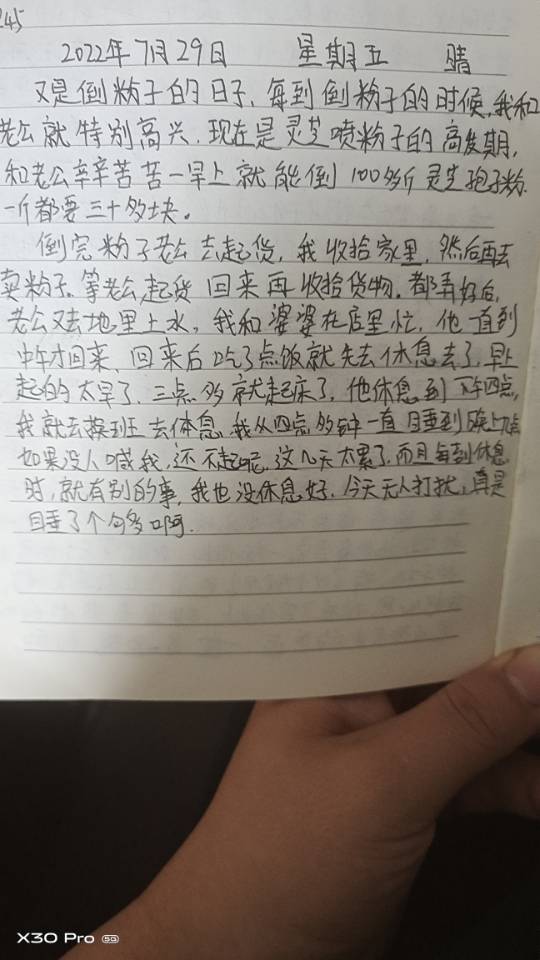 245
2022年7月29日 星期五 晴
又是倒粉子的日子,每到倒粉子的时候,我和
老公就特别高兴,现在是灵芝喷粉子的高发期,
和老公辛辛苦苦一早上就能倒100多斤灵芝孢子粉,
一斤都要三十多块。
倒完粉子老公去起货,我收拾家里,然后再去
卖粉子,等老公起货回来再收拾货物,都弄好后,
老公又去地里上水,我和婆婆在店里忙,他直到
中午才回来,回来后吃了点饭就先去休息去了,早上
起的太早了,三点多就起床了,他休息到下午四点,
我就去换班去休息,我从四点多钟一直睡到晚上九点
如果没人喊我,还不起呢,这几天太累了,而且每到休息
时,就有别的事,我也没休息好,今天无人打扰,真是
睡了个够啊.
X30 Pro 5G